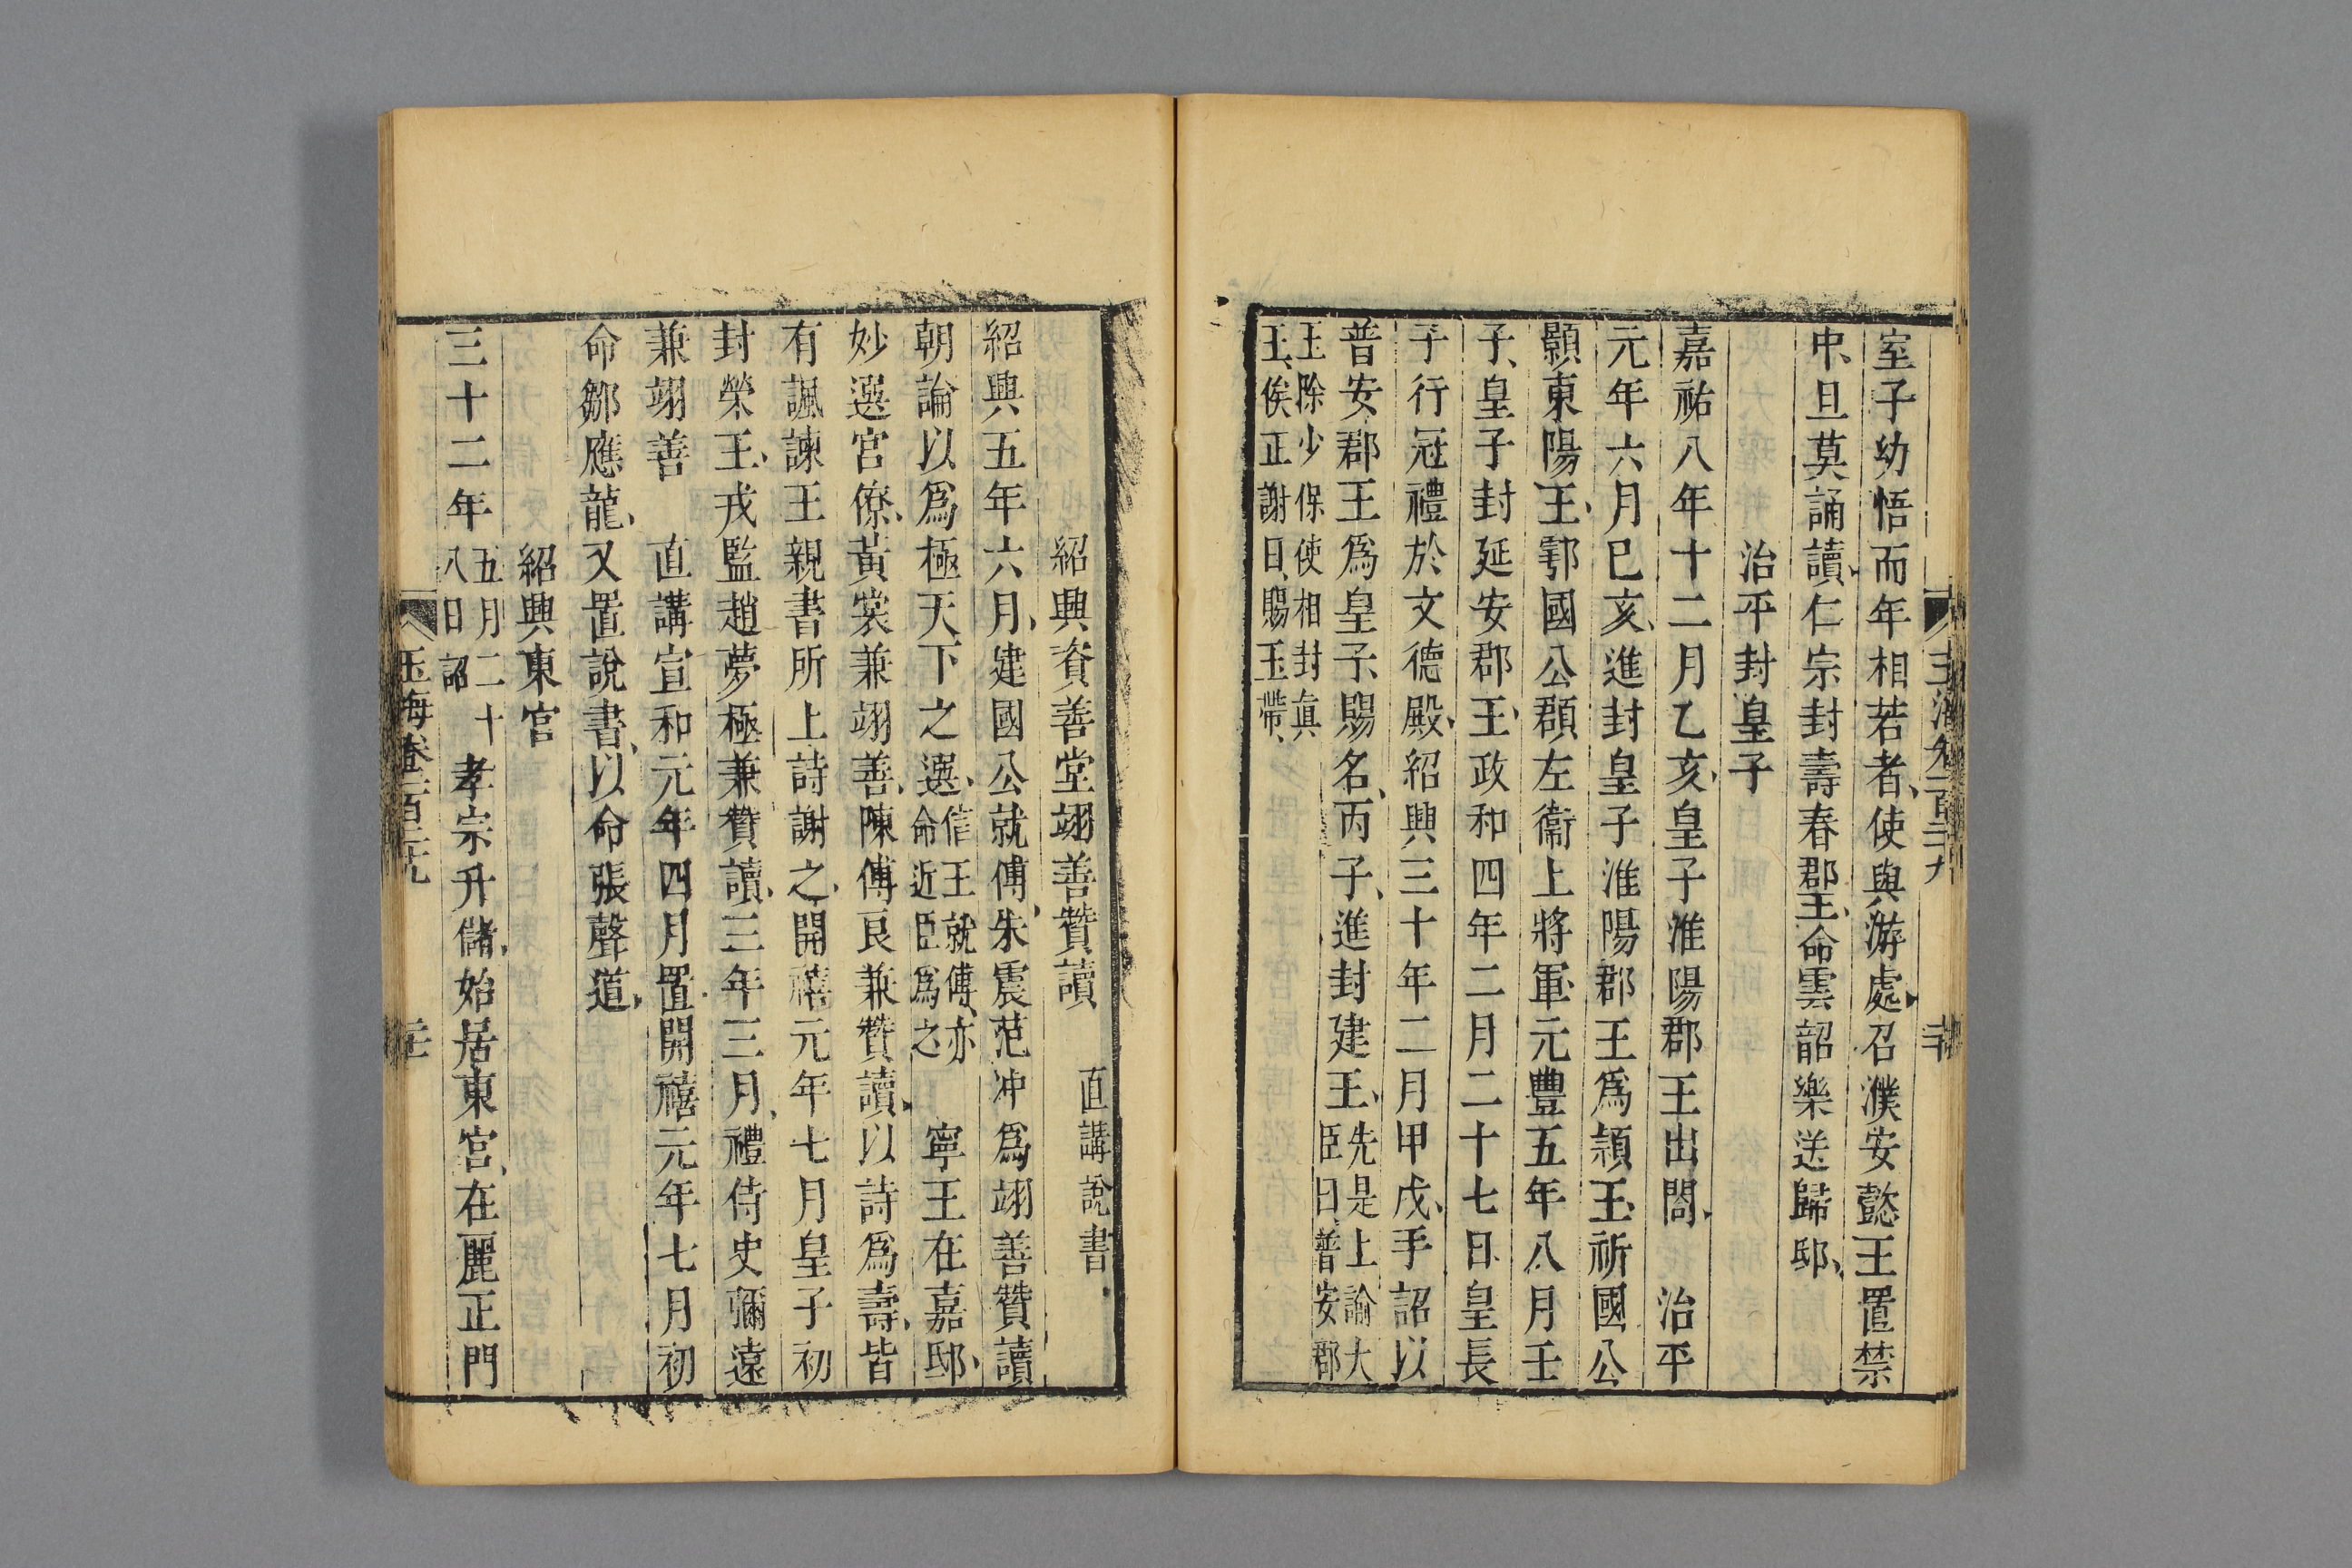 室子幼悟而年相若者、使與游處、召濮安懿王置禁
中、旦莫誦讀、仁宗封壽春郡王、命雲韶樂送歸邸、
治平封皇子
嘉祐八年十二月乙亥、皇子淮陽郡王出閤、治平
元年六月己亥、進封皇子淮陽郡王爲潁王、祈國公
顥東陽王、鄠國公頵左衞上將軍、元豐五年八月壬
子、皇子封延安郡王、政和四年二月二十七日、皇長
子行冠禮於文德殿、紹興三十年二月甲戌、手詔以
普安郡王爲皇子、賜名、丙子、進封建王、先是上諭大
臣曰、普安郡
王除少保使相封眞
王、俟正謝日、賜玉帶、
紹興資善堂翊善贊讀 直講說書
紹興五年六月、建國公就傅、朱震范冲爲翊善贊讀
朝論以爲極天下之選、信王就傅、亦
命近臣爲之 寧王在嘉邸、
妙選宮僚、黃裳兼翊善、陳傅良兼贊讀、以詩爲壽、皆
有諷諫、王親書所上詩謝之、開禧元年七月皇子初
封榮王、戎監趙夢極兼贊讀、三年三月、禮侍史彌遠
兼翊善 直講宣和元年四月置、開禧元年七月初
命鄒應龍、又置說書、以命張聲道、
紹興東宮
三十二年五月二十
八日詔 孝宗升儲、始居東宮、在麗正門
玉海卷一百二十九